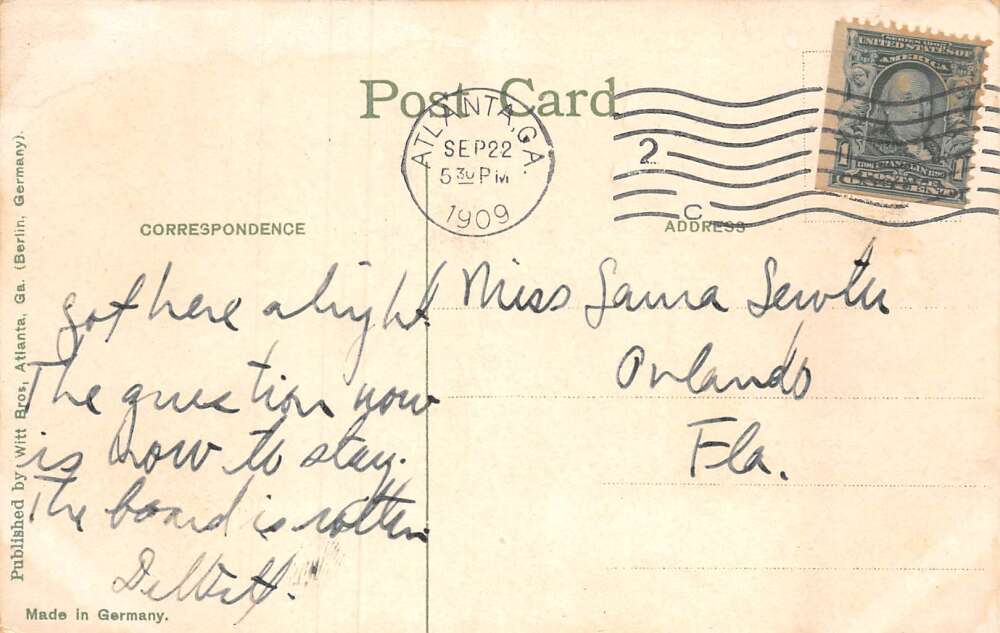 Post Card
ATLANTA, GA.
SEP 22
5 30 PM
1909
2
C
SERIES 1902
UNITED STATES OF
AMERICA
1 FRANKLIN 1
POSTAGE
ONE CENT
CORRESPONDENCE
ADDRESS
got here alright.
The question now
is how to stay.
The board is rotten
Miss Laura
Orlando
Fla.
Published by Witt Bros, Atlanta, Ga. (Berlin, Germany).
Made in Germany.